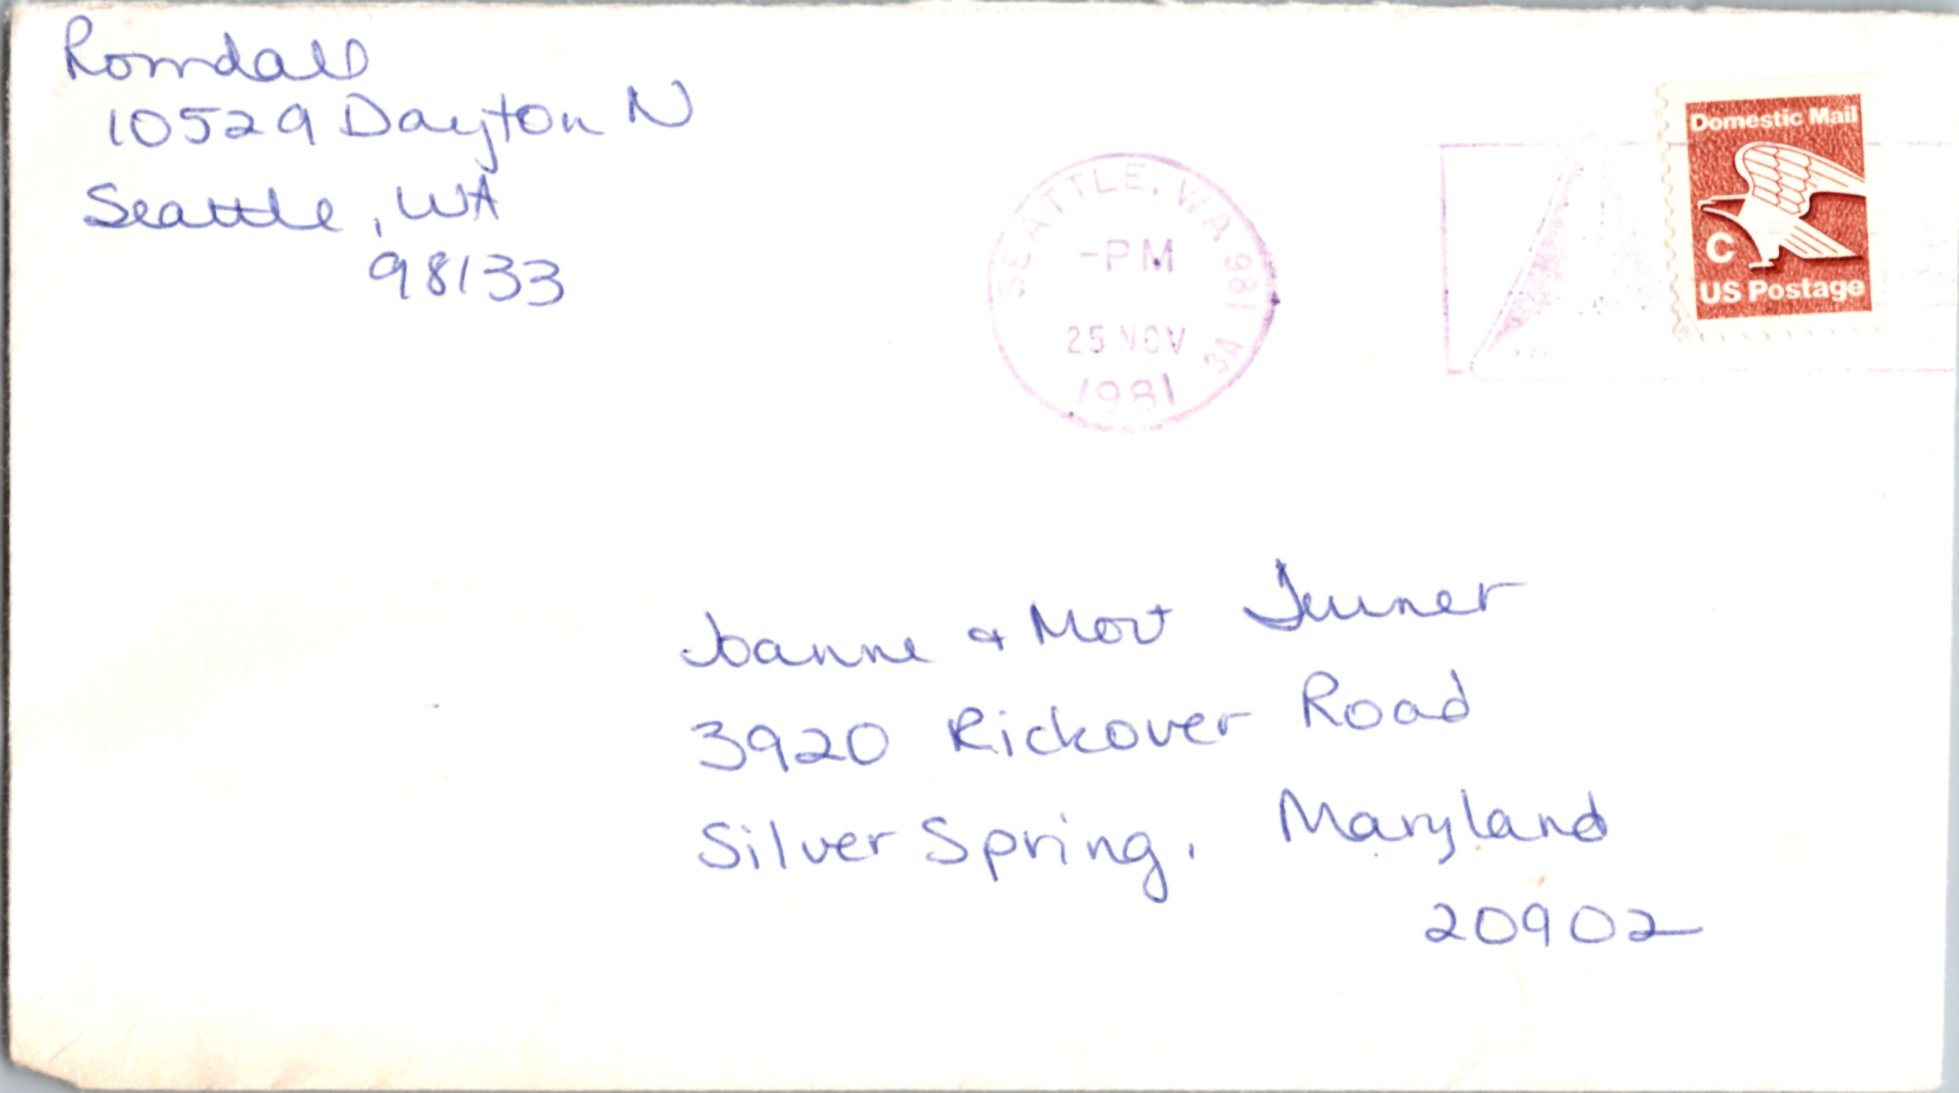 Romdall
10529 Dayton N
Seattle, WA
98133
SEATTLE, WA 981
-PM
25 NOV
1981
3A
Domestic Mail
C
US Postage
Joanne & Mort
3920 Rickover Road
Silver Spring, Maryland
20902